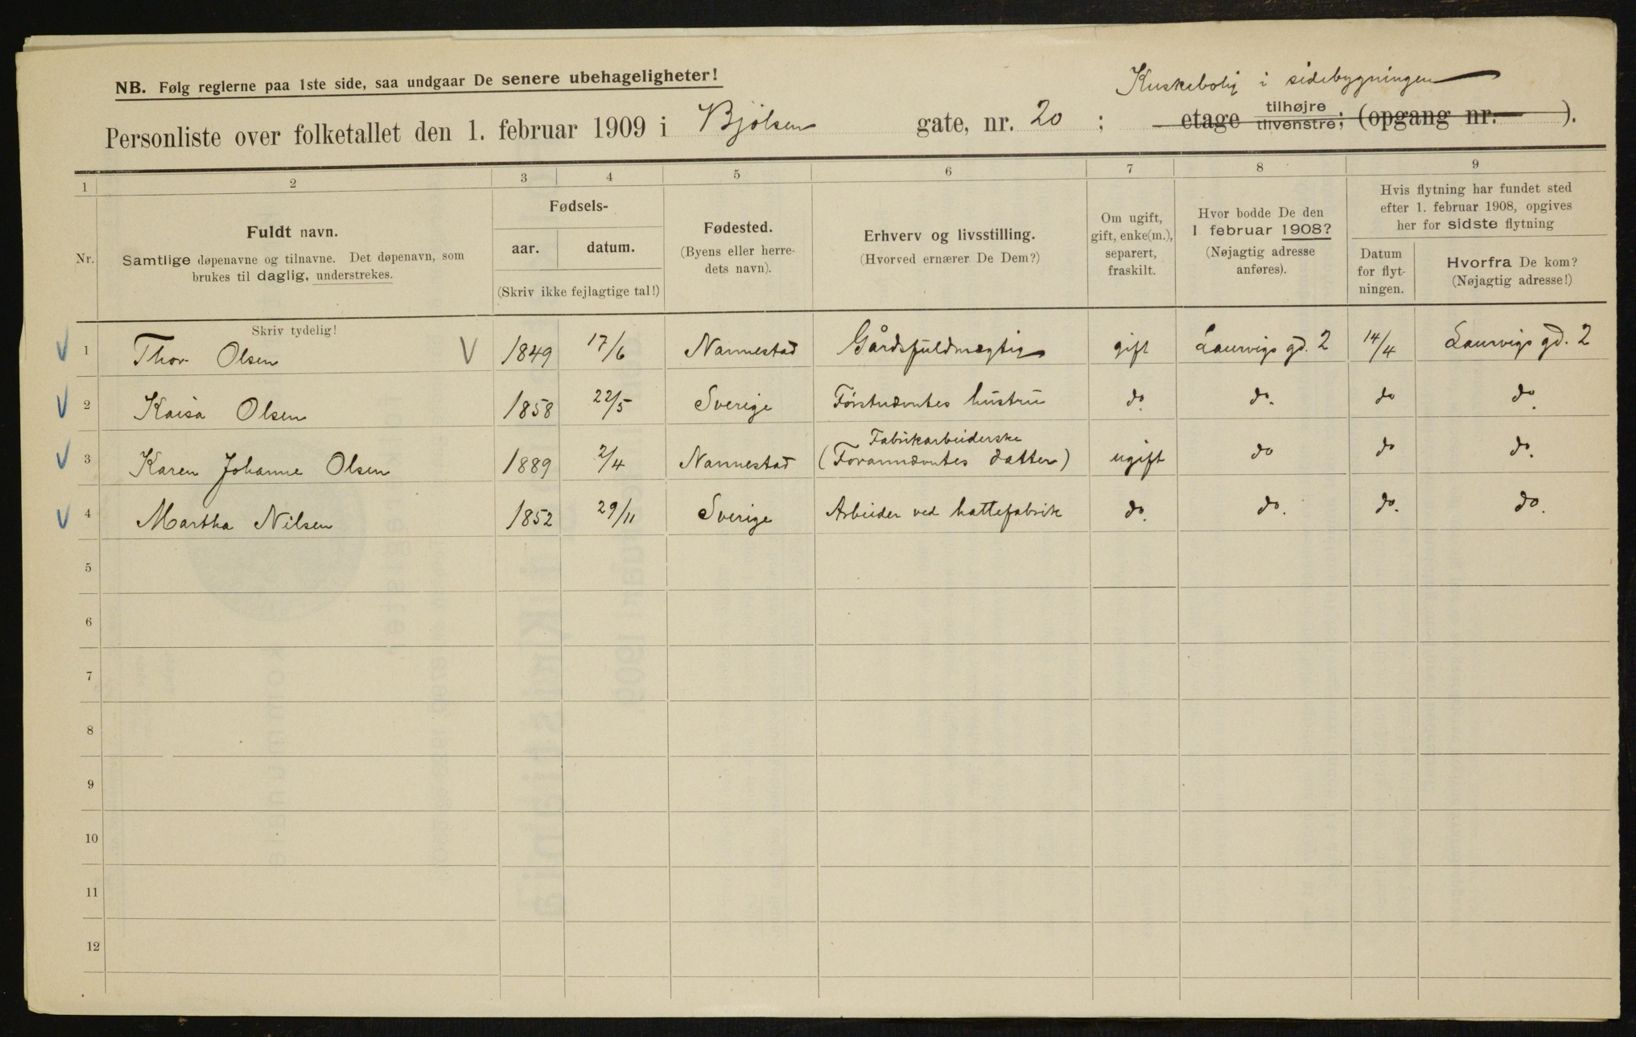 NB. Følg reglerne paa 1ste side, saa undgaar De senere ubehageligheter!
Kuskebolig i sidebygningen
Personliste over folketallet den 1. februar 1909 i Bjølsen gate, nr. 20 ; etage tilhøjre tilvenstre; (opgang nr. ).
1 2 3 4 5 6 7 8 9
Nr.
Fuldt navn.
Samtlige døpenavne og tilnavne. Det døpenavn, som
brukes til daglig, understrekes.
Fødsels-
aar. datum.
(Skriv ikke fejlagtige tal!)
Fødested.
(Byens eller herre-
dets navn).
Erhverv og livsstilling.
(Hvorved ernærer De Dem?)
Om ugift,
gift, enke(m.),
separert,
fraskilt.
Hvor bodde De den
1 februar 1908?
(Nøjagtig adresse
anføres).
Hvis flytning har fundet sted
efter 1. februar 1908, opgives
her for sidste flytning
Datum
for flyt-
ningen.
Hvorfra De kom?
(Nøjagtig adresse!)
Skriv tydelig!
1 Thor Olsen 1849 17/6 Nannestad Gårdsfuldmægtig gift Laurvigs gd. 2 14/4 Laurvigs gd. 2
2 Kaisa Olsen 1858 22/5 Sverige Førstnævntes hustru do. do. do do.
Fabrikarbeiderske
3 Karen Johanne Olsen 1889 2/4 Nannestad (Forannævntes datter) ugift do do do.
4 Martha Nilsen 1852 29/11 Sverige Arbeider ved hattefabrik do. do. do. do.
5
6
7
8
9
10
11
12